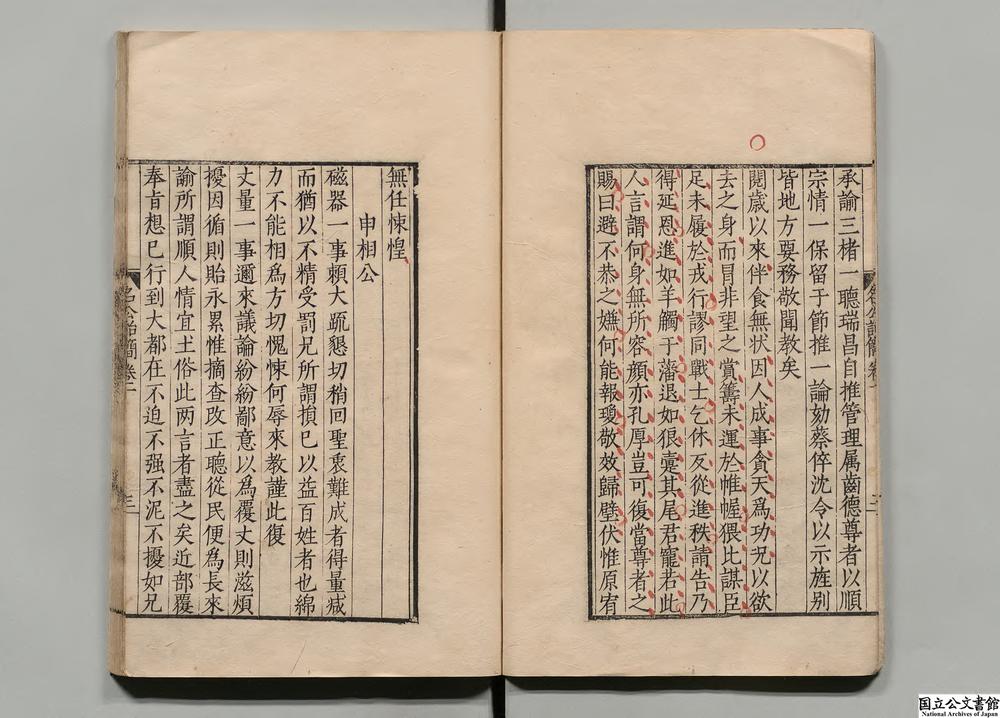 承諭三楮一聽瑞昌自推管理属齒德尊者以順
宗情一保留于節推一論劾蔡倅沈令以示旌别
皆地方要務敬聞教矣
閱歳以來伴食無状因人成事貪天爲功况以欲
去之身而冒非望之賞籌未運於帷幄猥比謀臣
足未履於戎行謬同戰士乞休反從進秩請告乃
得延恩進如羊觸于藩退如狼疐其尾君寵若此
人言謂何身無所容顔亦孔厚豈可復當尊者之
賜曰避不恭之嫌何能報瓊敬效歸璧伏惟原宥
無任悚惶
申相公
磁器一事頼大疏懇切稍回聖衷難成者得量减
而猶以不精受罰兄所謂損已以益百姓者也綿
力不能相爲方切愧悚何辱來教謹此復
丈量一事邇來議論紛紛鄙意以爲覆丈則滋煩
擾因循則貽永累惟摘查改正聽從民便爲長來
諭所謂順人情宜土俗此两言者盡之矣近部覆
奉旨想已行到大都在不迫不强不泥不擾如兄
卷二
三
国立公文書館
National Archives of Japan